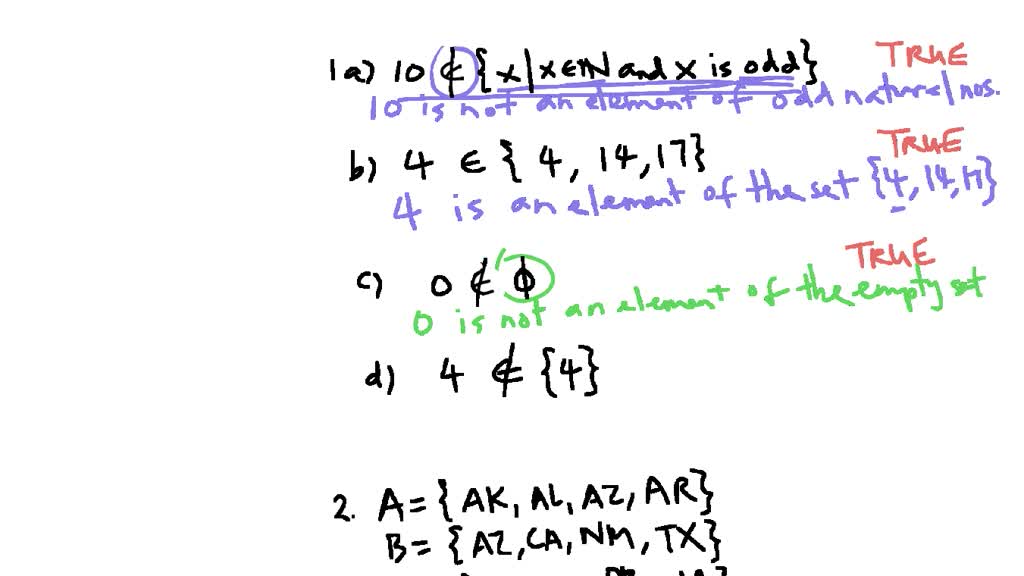 1a) 10 ∉ {x | x ∈ ℕ and x is odd} TRUE
10 is not an element of odd natural nos.
b) 4 ∈ {4, 14, 17} TRUE
4 is an element of the set {4, 14, 17}
c) 0 ∉ ϕ TRUE
0 is not an element of the empty set
d) 4 ∉ {4}
2. A = {AK, AL, AZ, AR}
B = {AZ, CA, NM, TX}